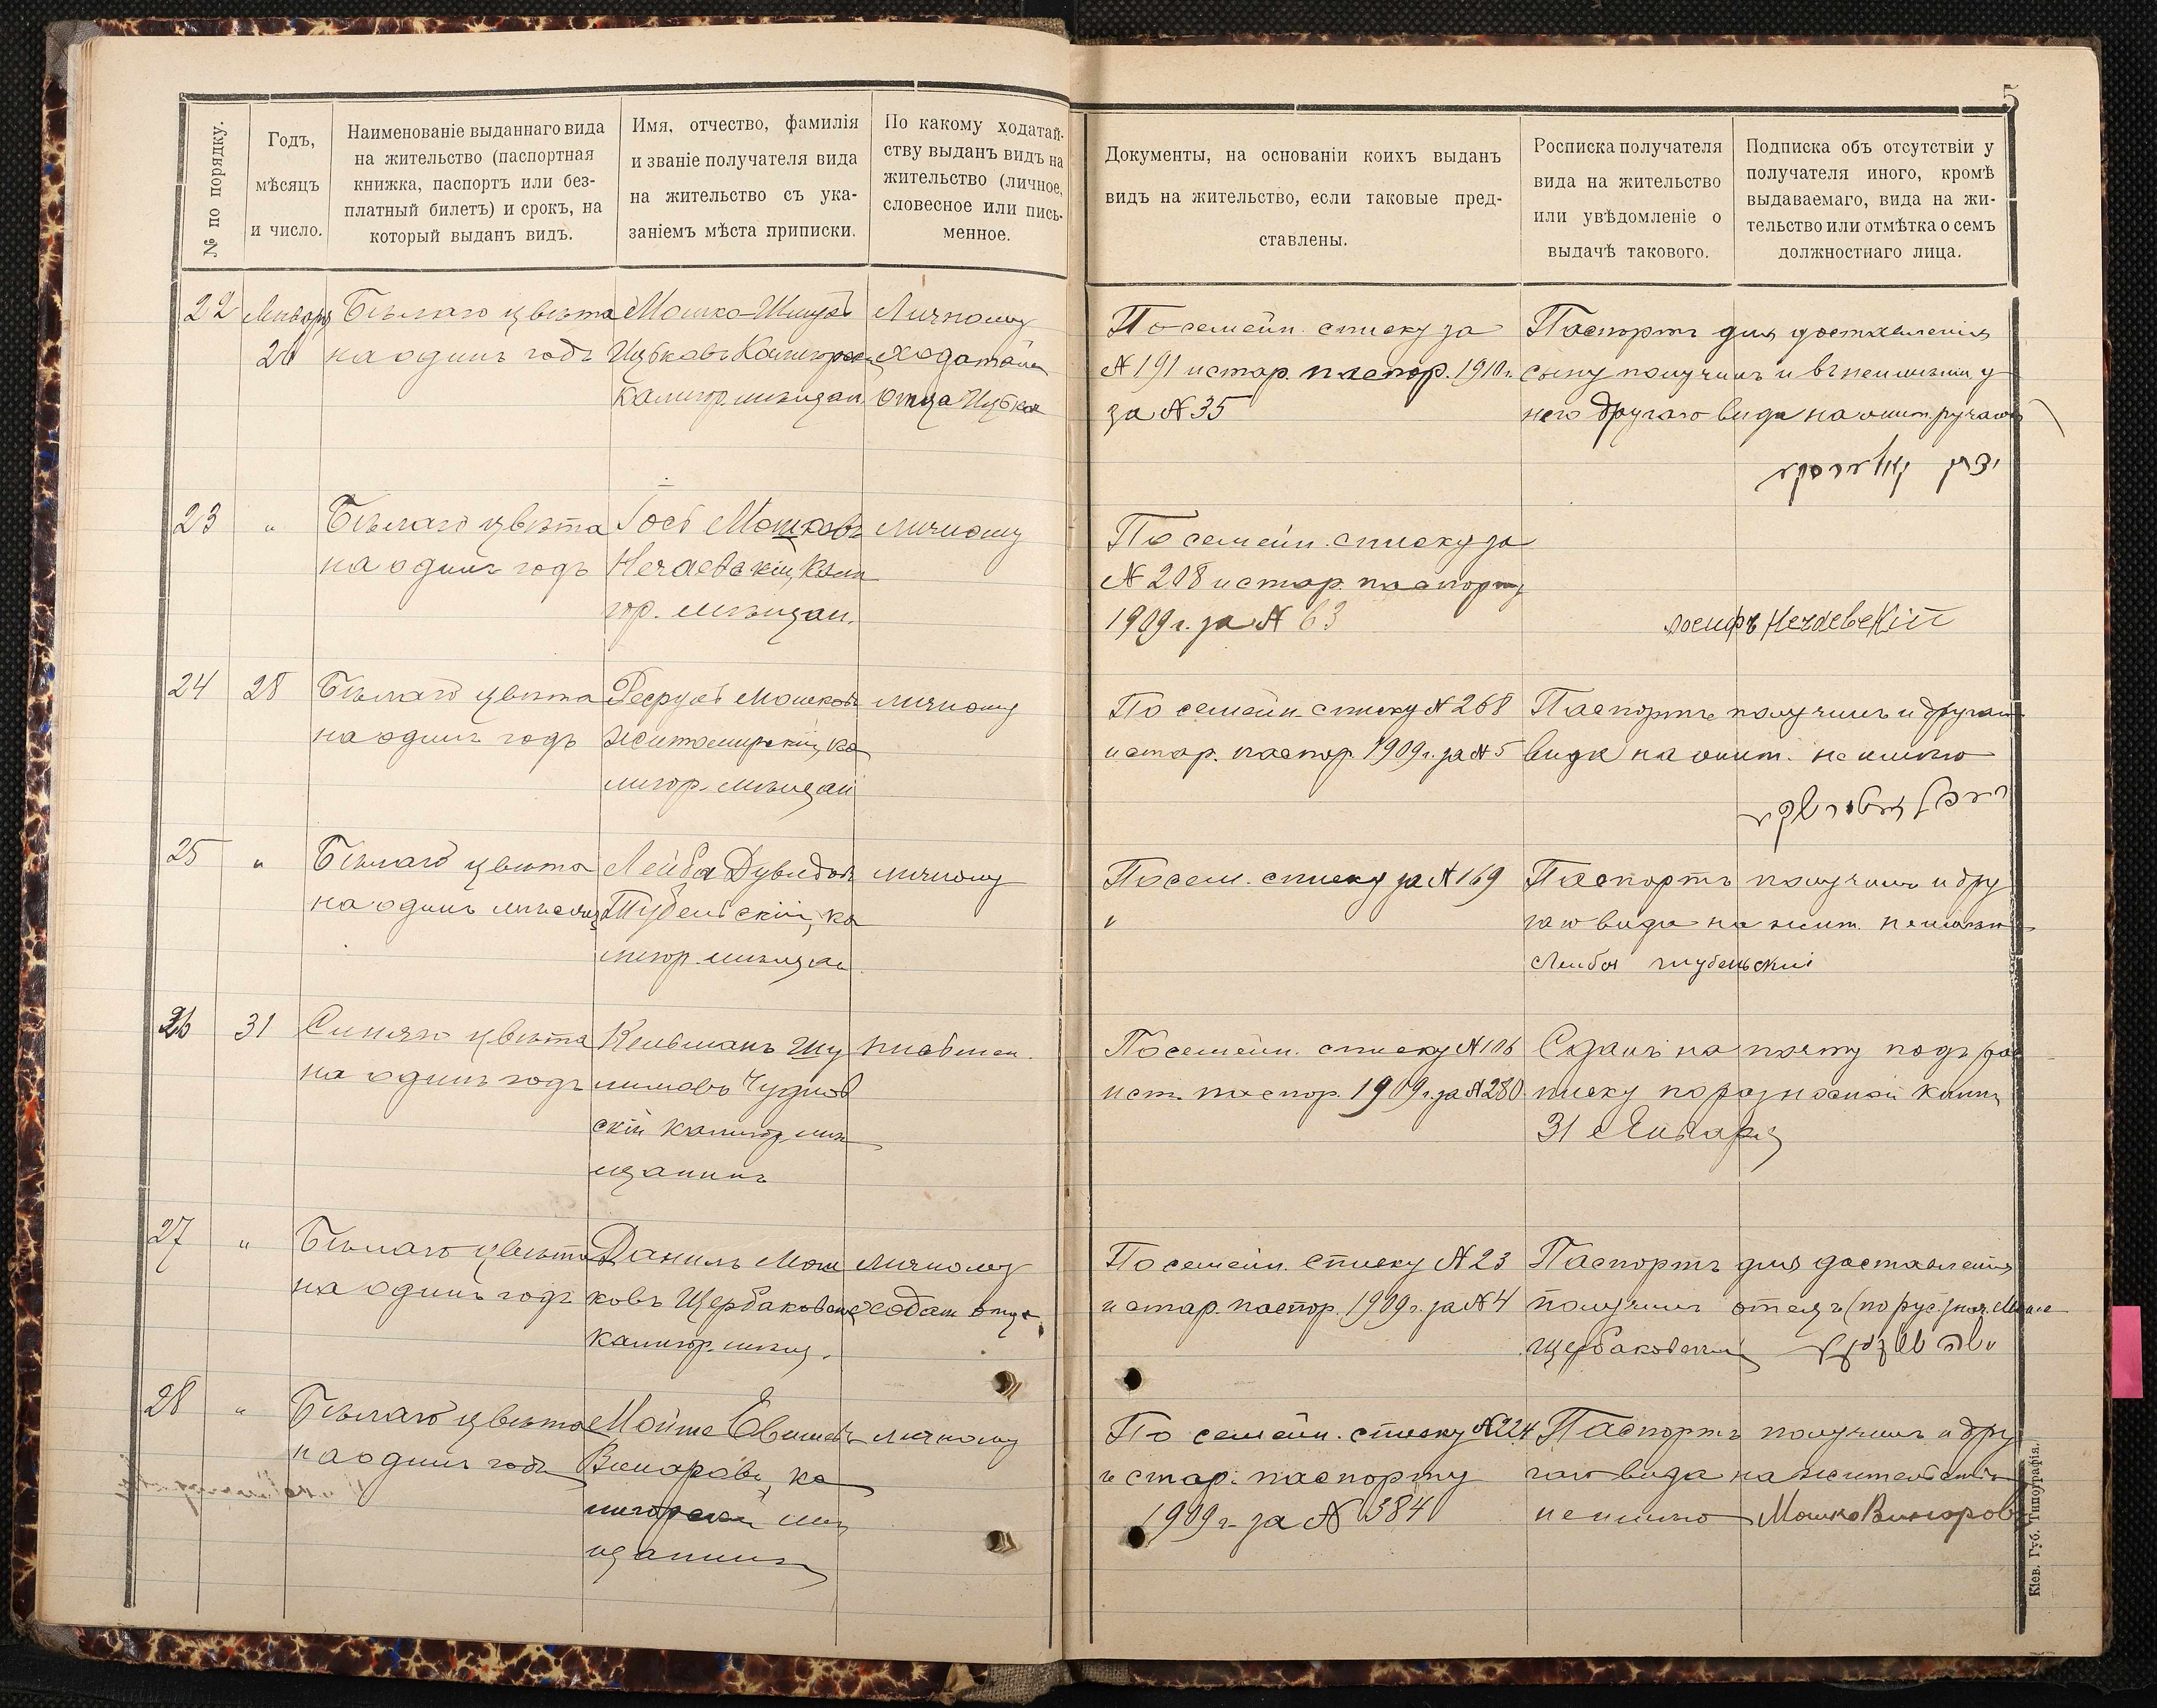 5
№ по порядку.
Годъ,
мѣсяцъ
и число.
Наименованіе выданнаго вида
на жительство (паспортная
книжка, паспортъ или без-
платный билетъ) и срокъ, на
который выданъ видъ.
Имя, отчество, фамилія
и званіе получателя вида
на жительство съ ука-
заніемъ мѣста приписки.
По какому ходатай-
ству выданъ видъ на
жительство (личное,
словесное или пись-
менное.
Документы, на основаніи коихъ выданъ
видъ на жительство, если таковые пред-
ставлены.
Росписка получателя
вида на жительство
или увѣдомленіе о
выдачѣ такового.
Подписка объ отсутствіи у
получателя иного, кромѣ
выдаваемаго, вида на жи-
тельство или отмѣтка о семъ
должностнаго лица.
22
Января
Бѣлаго цвѣта
на одинъ годъ
Мошко
Ицковъ
калигор. мѣщан.
Личному
ходатай
отца Ицка
По семейн. списку за
№ 191 и стар. паспор. 1910 г.
за № 35
Паспортъ для доставленія
сыну получилъ и въ неимѣніи у
него другаго вида на жит. ручаюсь
23
"
Бѣлаго цвѣта
на одинъ годъ
Іось Мошковъ
Нечаевскій, Кали
гор. мѣщан.
личному
По семейн. списку за
№ 208 и стар. паспорту
1909 г. за № 63
Іосифъ Нечаевскій
24
28
Бѣлаго цвѣта
на одинъ годъ
Мошковъ
Житомирскій, ка
лигор. мѣщан
личному
По семейн. списку № 268
и стар. паспор. 1909 г. за № 5
Паспортъ получилъ и другаго
вида на жит. не имѣю
25
"
Бѣлаго цвѣта
на одинъ мѣсяцъ
Лейба Дувидовъ
Тубельскій, ка
лигор. мѣщан
личному
По сем. списку за № 169
Паспортъ получилъ и дру
гаго вида на жит. неимѣю
Лейба тубельскій
26
31
Синяго цвѣта
на одинъ годъ
Кельманъ Шу
лимовъ Чуднов
скій калигор. мѣ
щанинъ
письмен.
По семейн. списку № 106
и ст. паспор. 1909 г. за № 280
Сданъ на почту подъ рос
писку по разносной книгѣ
31 Января
27
"
Бѣлаго цвѣта
на одинъ годъ
Данилъ Мош
ковъ Щербаковскій
калигор. мѣщ.
личному
ходат. отца
По семейн. списку № 23
и стар. паспор. 1909 г. за № 4
Паспортъ для доставленія
получилъ отецъ
щербаковскій
28
"
Бѣлаго цвѣта
на одинъ годъ
Мойше
Винаровъ, ка
лигорскій мѣ
щанинъ
личному
По семейн. списку № 224
и стар. паспорту
1909 г. за № 384
Паспортъ получилъ и дру
гаго вида на жительство
неимѣю Мошко Винаровъ
Кіев. Губ. Типографія.